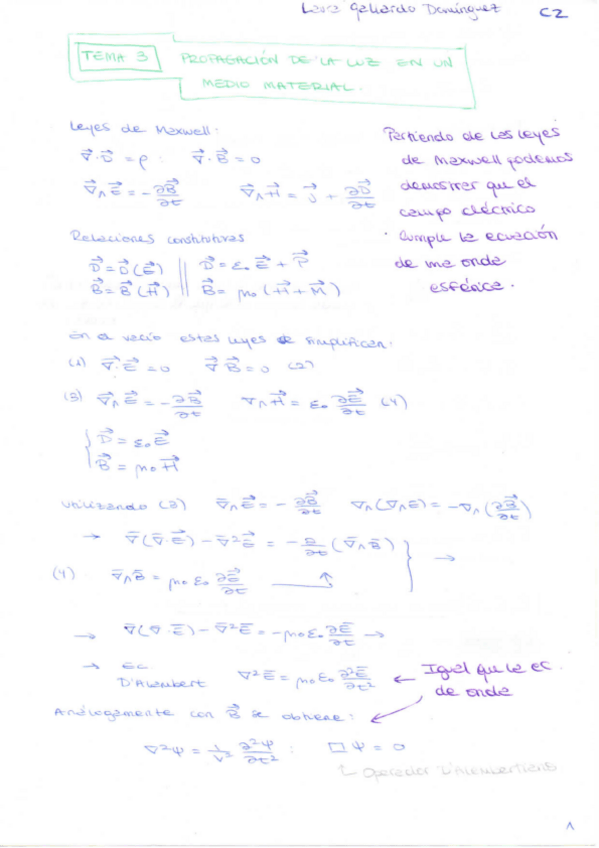 Laura Gallardo Domínguez C2
TEMA 3 PROPAGACIÓN DE LA LUZ EN UN
MEDIO MATERIAL.
Leyes de Maxwell:
∇⃗·D⃗ = ρ : ∇⃗·B⃗ = 0
∇⃗∧E⃗ = -∂B⃗/∂t ∇⃗∧H⃗ = J⃗ + ∂D⃗/∂t
Partiendo de las leyes
de Maxwell podemos
demostrar que el
campo eléctrico
cumple la ecuación
de una onda
esférica.
Relaciones constitutivas
D⃗ = D⃗(E⃗) || D⃗ = ε₀E⃗ + P⃗
B⃗ = B⃗(H⃗) || B⃗ = μ₀(H⃗ + M⃗)
En el vacío estas leyes se simplifican:
(1) ∇⃗·E⃗ = 0 ∇⃗B⃗ = 0 (2)
(3) ∇⃗∧E⃗ = -∂B⃗/∂t ∇∧H⃗ = ε₀ ∂E⃗/∂t (4)
{ D⃗ = ε₀E⃗
B⃗ = μ₀H⃗
Utilizando (3) ∇̄∧E⃗ = -∂B⃗/∂t ∇∧(∇∧E) = -∇∧(∂B⃗/∂t)
→ ∇̄(∇̄·E⃗) - ∇̄²E⃗ = -∂/∂t (∇̄∧B̄) } →
(4) ∇̄∧B̄ = μ₀ε₀ ∂E⃗/∂t
→ ∇̄(∇·E̅) - ∇̄²E̅ = -μ₀ε₀ ∂E̅/∂t →
→ Ec.
D'Alembert ∇²E̅ = μ₀ε₀ ∂²E̅/∂t² ← Igual que la ec.
de onda
Análogamente con B⃗ se obtiene:
∇²Ψ = 1/v² ∂²Ψ/∂t² : □Ψ = 0
Operador D'Alembertiano
1